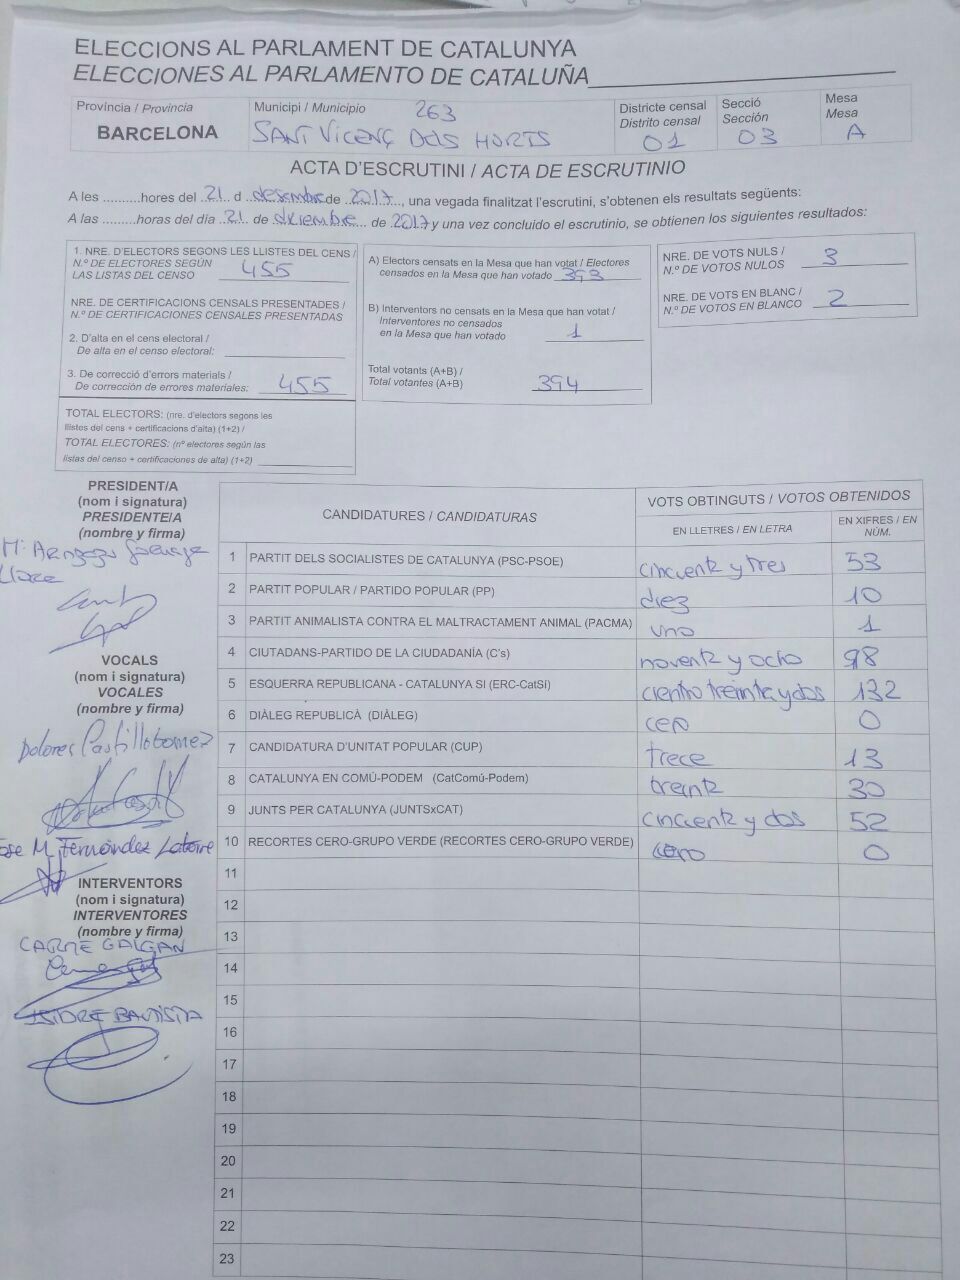 ELECCIONS AL PARLAMENT DE CATALUNYA
ELECCIONES AL PARLAMENTO DE CATALUÑA
Província / Provincia
BARCELONA
Municipi / Municipio 263
SANT VICENÇ DELS HORTS
Districte censal
Distrito censal
01
Secció
Sección
03
Mesa
Mesa
A
ACTA D'ESCRUTINI / ACTA DE ESCRUTINIO
A les .........hores del 21 d desembre de 2017, una vegada finalitzat l'escrutini, s'obtenen els resultats següents:
A las .........horas del día 21 de diciembre de 2017 y una vez concluido el escrutinio, se obtienen los siguientes resultados:
1. NRE. D'ELECTORS SEGONS LES LLISTES DEL CENS /
N.º DE ELECTORES SEGÚN
LAS LISTAS DEL CENSO 455
NRE. DE CERTIFICACIONS CENSALS PRESENTADES /
N.º DE CERTIFICACIONES CENSALES PRESENTADAS
2. D'alta en el cens electoral /
De alta en el censo electoral:
3. De correcció d'errors materials /
De corrección de errores materiales: 455
TOTAL ELECTORS: (nre. d'electors segons les
llistes del cens + certificacions d'alta) (1+2) /
TOTAL ELECTORES: (nº electores según las
listas del censo + certificaciones de alta) (1+2)
A) Electors censats en la Mesa que han votat / Electores
censados en la Mesa que han votado 393
B) Interventors no censats en la Mesa que han votat /
Interventores no censados
en la Mesa que han votado 1
Total votants (A+B) /
Total votantes (A+B) 394
NRE. DE VOTS NULS /
N.º DE VOTOS NULOS 3
NRE. DE VOTS EN BLANC /
N.º DE VOTOS EN BLANCO 2
PRESIDENT/A
(nom i signatura)
PRESIDENTE/A
(nombre y firma)
VOCALS
(nom i signatura)
VOCALES
(nombre y firma)
Dolores Castillo Gomez
Jose M. Fernández Latorre
INTERVENTORS
(nom i signatura)
INTERVENTORES
(nombre y firma)
CARME GALGAN
ISIDRE BAUTISTA
CANDIDATURES / CANDIDATURAS
VOTS OBTINGUTS / VOTOS OBTENIDOS
EN LLETRES / EN LETRA
EN XIFRES / EN
NÚM.
1 PARTIT DELS SOCIALISTES DE CATALUNYA (PSC-PSOE) cincuenta y tres 53
2 PARTIT POPULAR / PARTIDO POPULAR (PP) diez 10
3 PARTIT ANIMALISTA CONTRA EL MALTRACTAMENT ANIMAL (PACMA) uno 1
4 CIUTADANS-PARTIDO DE LA CIUDADANÍA (C's) noventa y ocho 98
5 ESQUERRA REPUBLICANA - CATALUNYA SI (ERC-CatSí) ciento treinta y dos 132
6 DIÀLEG REPUBLICÀ (DIÀLEG) cero 0
7 CANDIDATURA D'UNITAT POPULAR (CUP) trece 13
8 CATALUNYA EN COMÚ-PODEM (CatComú-Podem) treinta 30
9 JUNTS PER CATALUNYA (JUNTSxCAT) cincuenta y dos 52
10 RECORTES CERO-GRUPO VERDE (RECORTES CERO-GRUPO VERDE) cero 0
11
12
13
14
15
16
17
18
19
20
21
22
23